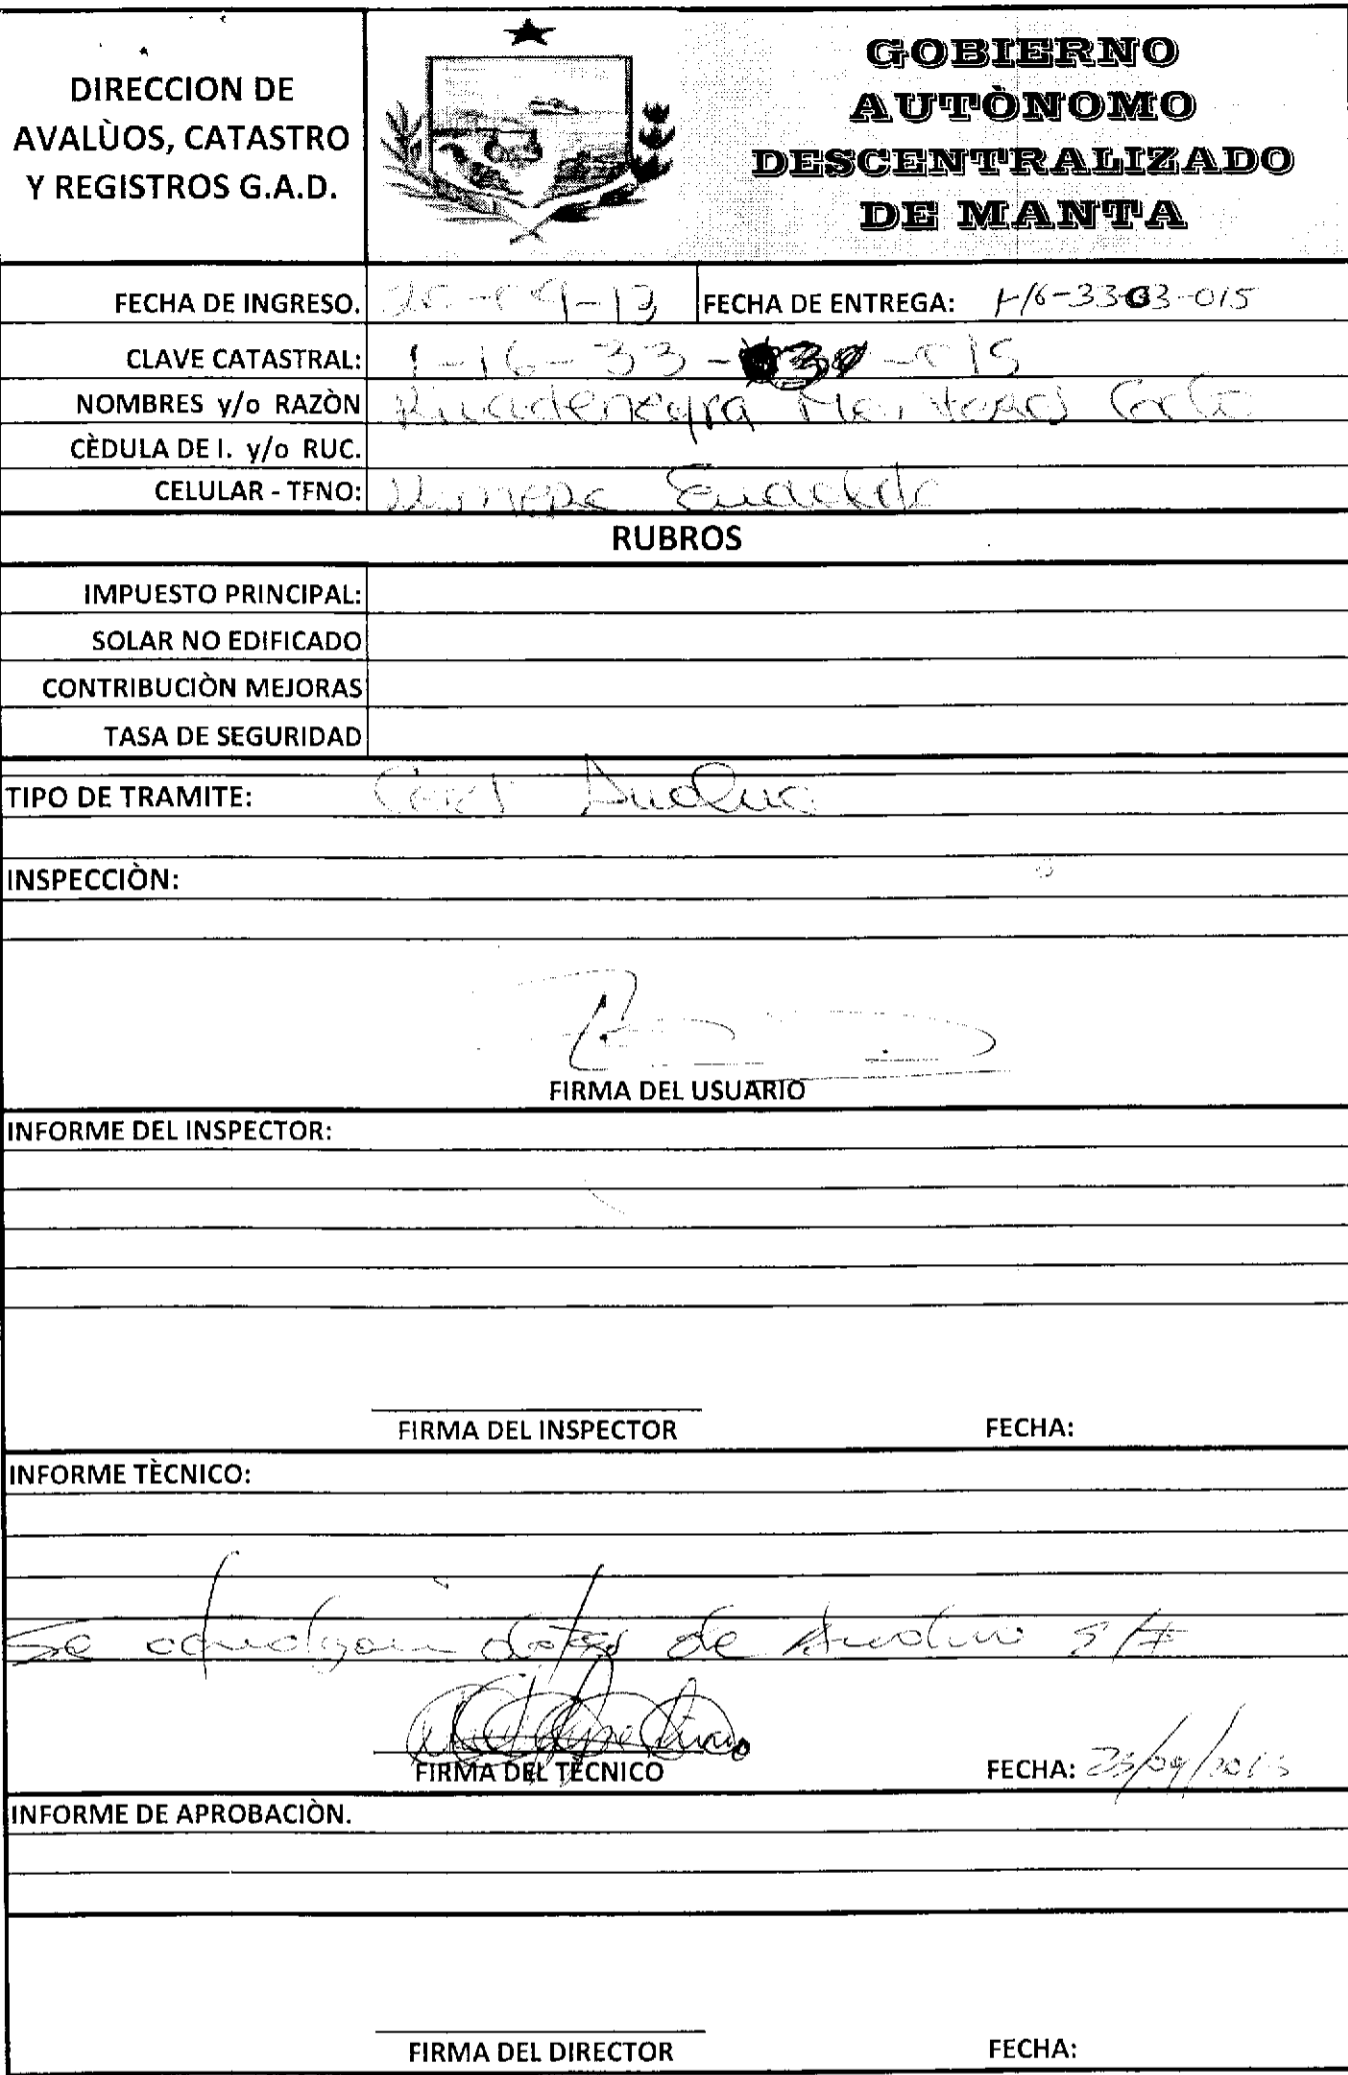 DIRECCION DE
AVALÙOS, CATASTRO
Y REGISTROS G.A.D.
GOBIERNO
AUTÒNOMO
DESCENTRALIZADO
DE MANTA
FECHA DE INGRESO. -09-13 FECHA DE ENTREGA: 1-16-3303-015
CLAVE CATASTRAL: 1-16-33- -015
NOMBRES y/o RAZÒN
CÈDULA DE I. y/o RUC.
CELULAR - TFNO:
RUBROS
IMPUESTO PRINCIPAL:
SOLAR NO EDIFICADO
CONTRIBUCIÒN MEJORAS
TASA DE SEGURIDAD
TIPO DE TRAMITE: Cert
INSPECCIÒN:
FIRMA DEL USUARIO
INFORME DEL INSPECTOR:
FIRMA DEL INSPECTOR FECHA:
INFORME TÈCNICO:
Se datos de
FIRMA DEL TÈCNICO FECHA: 23/09/2013
INFORME DE APROBACIÒN.
FIRMA DEL DIRECTOR FECHA: